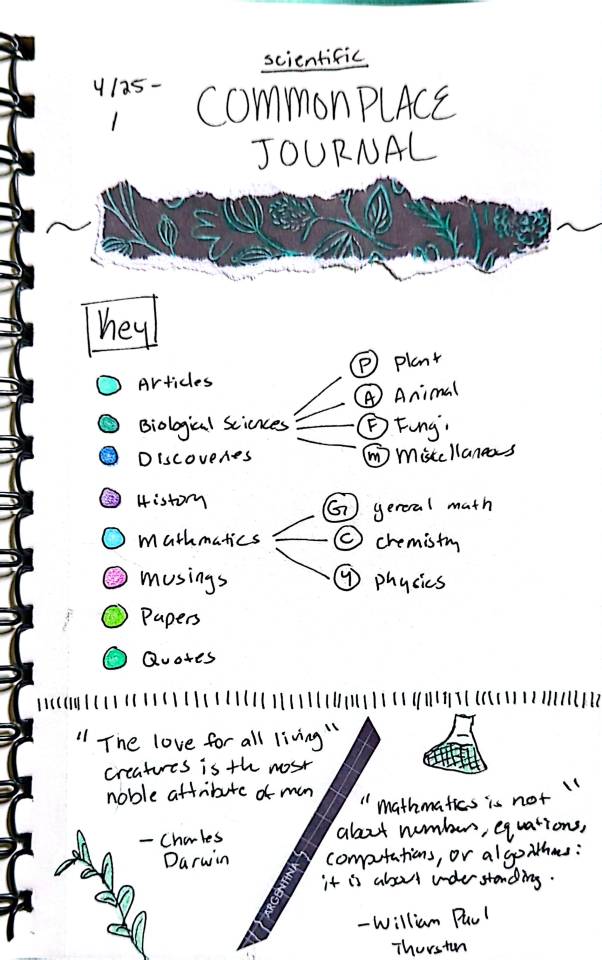 scientific
4/25 -
/
COMMONPLACE
JOURNAL
Key
Articles
Biological Sciences
Discoveries
History
Mathmatics
Musings
Papers
Quotes
P Plant
A Animal
F Fungi
M Miscellaneous
G general math
C chemistry
y physics
"The love for all living"
creatures is the most
noble attribute of man
- Charles
Darwin
ARGENTINA
"Mathmatics is not"
about numbers, equations,
computations, or algorithms:
it is about understanding.
- William Paul
Thurston